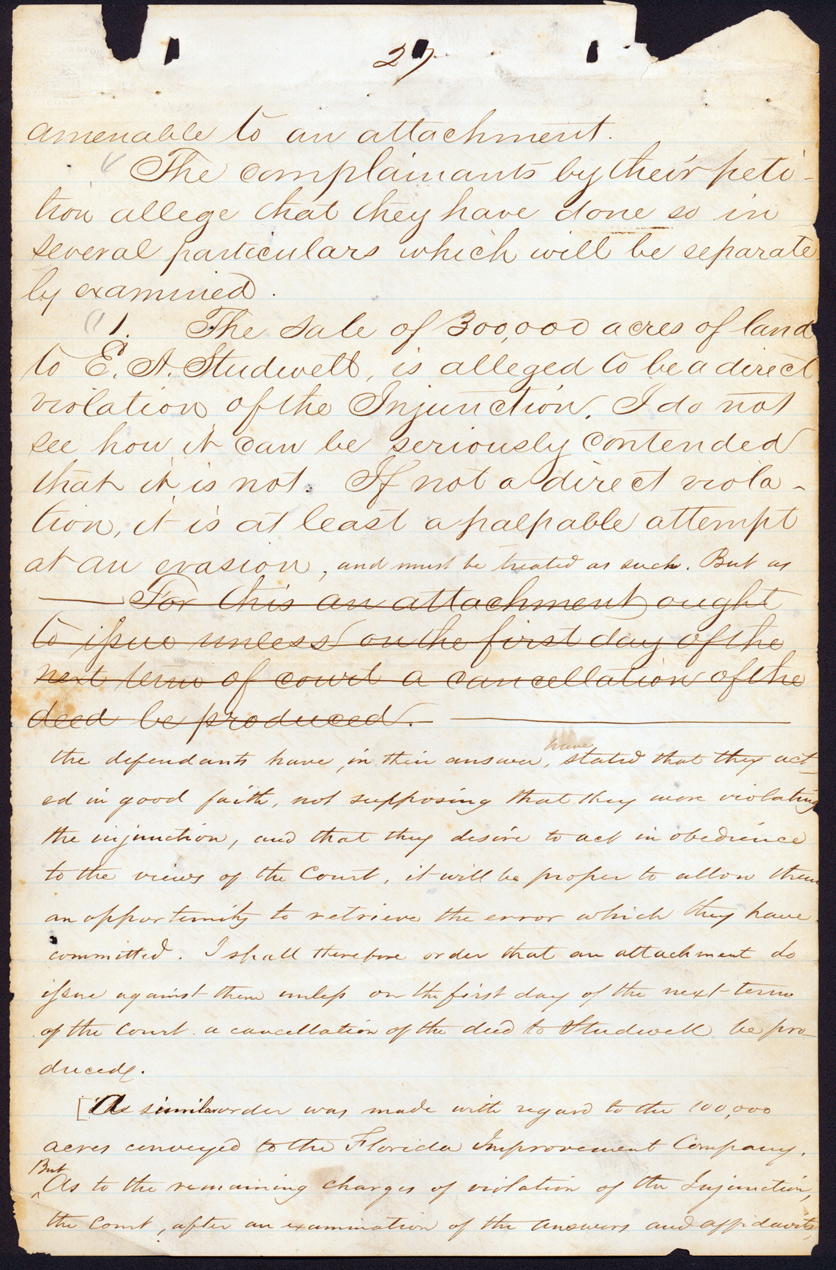 27
amenable to an attachment.
The complainants by their peti-
tion allege that they have done so in
several particulars which will be separate
ly examined.
1. The sale of 300,000 acres of land
to E. A. Studwell, is alleged to be a direct
violation of the Injunction. I do not
see how it can be seriously contended
that it is not. If not a direct viola-
tion, it is at least a palpable attempt
at an evasion, and must be treated as such. But as
For this an attachment ought
to issue unless on the first day of the
next term of court a cancellation of the
deed be produced.
have
the defendants have in their answer, stated that they act-
ed in good faith, not supposing that they were violating
the injunction, and that they desire to act in obedience
to the views of the Court, it will be proper to allow them
an opportunity to retrieve the error which they have
committed. I shall therefore order that an attachment do
issue against them unless on the first day of the next term
of the Court a cancellation of the deed to Studwell be pro-
duced.
[A similar order was made with regard to the 100,000
acres conveyed to the Florida Improvement Company.
But
As to the remaining charges of violation of the Injunction,
the Court, after an examination of the answers and affidavits,